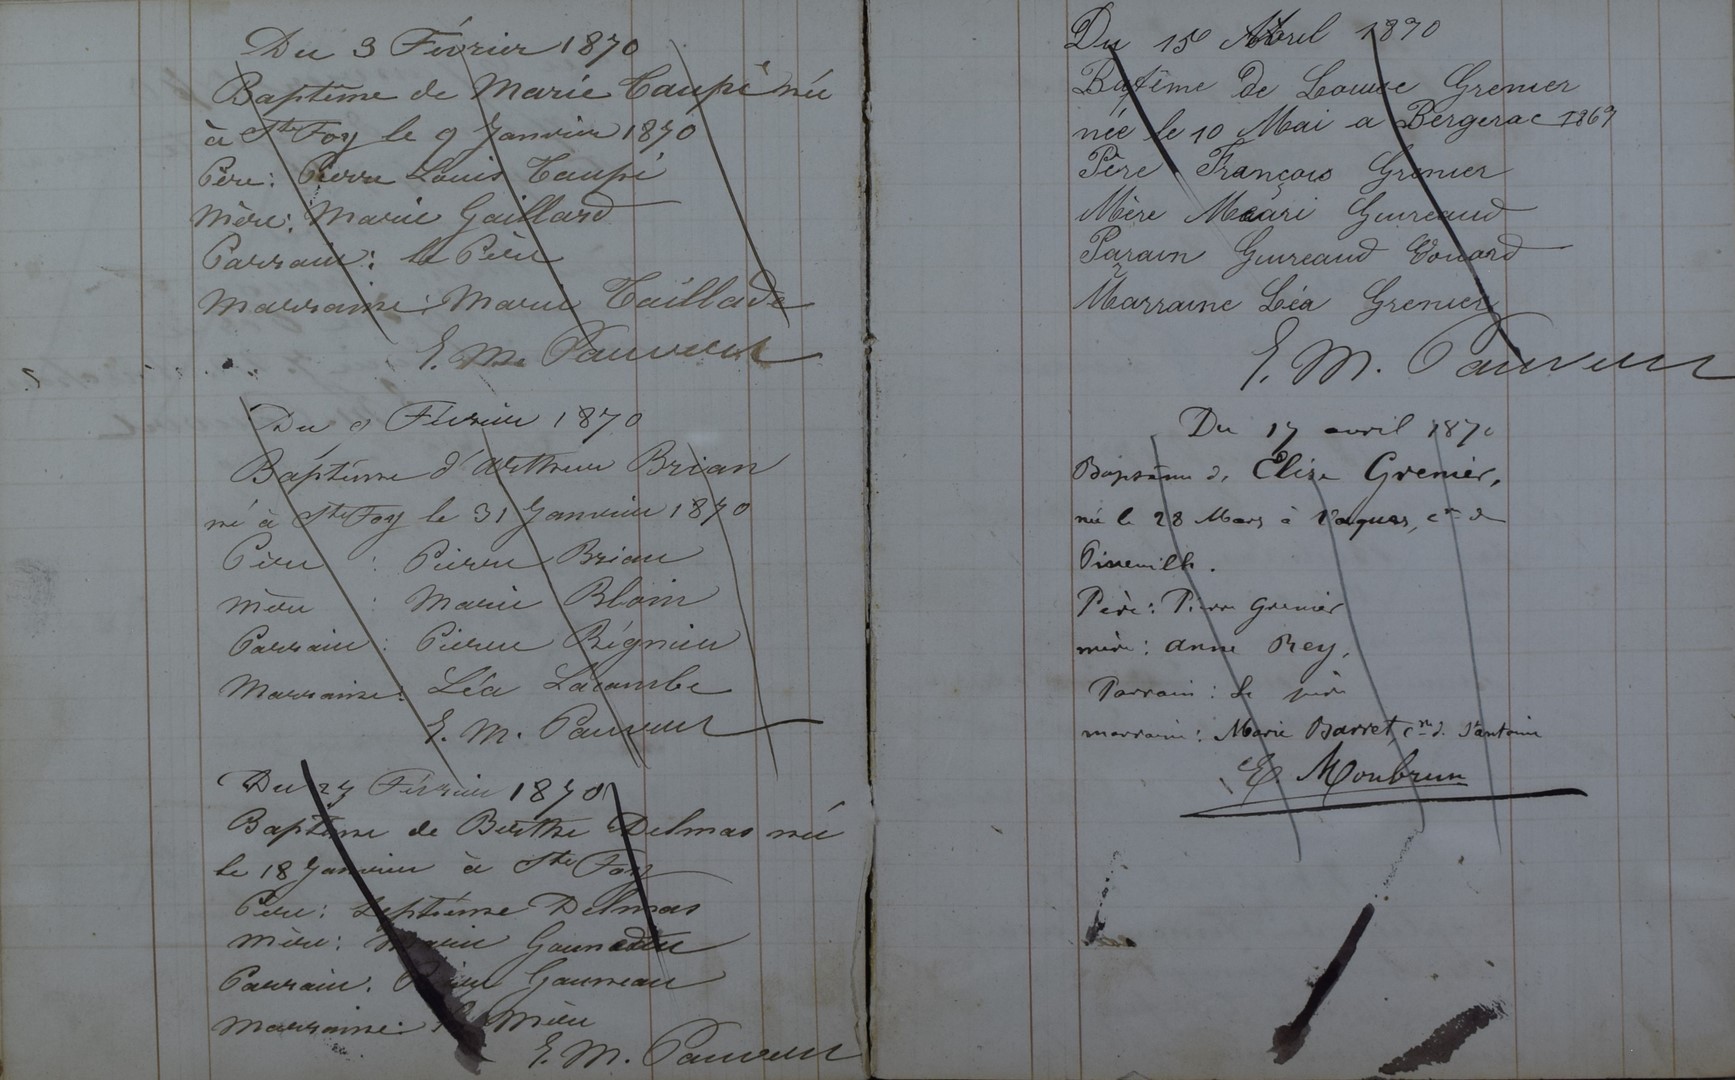 Du 3 Février 1870
Baptême de Marie Taupié née
à Ste Foy le 9 Janvier 1870
Père: Pierre Louis Taupié
Mère: Marie Gaillard
Parrain: le Père
Marraine: Marie Taillade
E. M.
Du 9 Février 1870
Baptême d'Arthur Brian
né à Ste Foy le 31 Janvier 1870
Père : Pierre Brian
Mère : Marie Bloin
Parrain: Pierre Régnier
Marraine: Léa Lacombe
E. M.
Du Février 1870
Baptême de Berthe Delmas née
le 18 Janvier à Ste Foy
Père: Septième Delmas
Mère: Marie
Parrain. Gauneau
Marraine: Mère
E. M.
Du 15 Abril 1870
Batême De Louise Grenier
née le 10 Mai a Bergerac 1869
Père François Grenier
Mère Mari Guireaud
Parain Guireaud Edouard
Marraine Léa Grenier
E. M.
Du 17 avril 1870
Baptême de Elise Grenier,
née le 28 Mars à cne de
Pineuilh.
Père: Pierre Grenier
mère: anne Rey,
Parrain: le père
marraine: Marie Barret cne de St antoine
E Monbrun